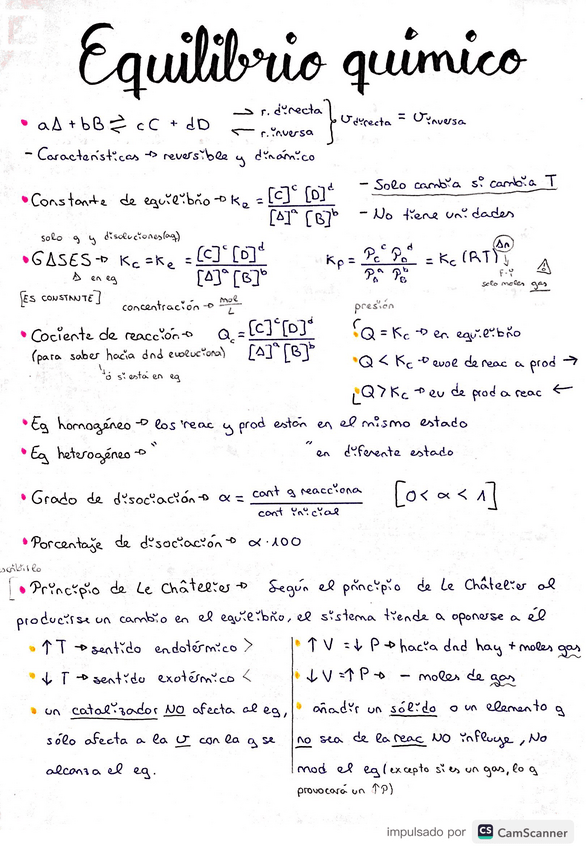 Equilibrio químico
• aA + bB ⇌ cC + dD → r. directa ← r. inversa } v directa = v inversa
- Características → reversible y dinámico
• Constante de equilibrio → Ke = [C]^c [D]^d / [A]^a [B]^b
- Solo cambia si cambia T
- No tiene unidades
solo g y disoluciones (aq)
• GASES → Kc = Ke = [C]^c [D]^d / [A]^a [B]^b
Δ en eq
Kp = Pc^c PD^d / PA^a PB^b = Kc (RT)^Δn
F-I
solo moles gas
[ES CONSTANTE]
concentración → mol/L
presión
• Cociente de reacción → Qc = [C]^c [D]^d / [A]^a [B]^b
(para saber hacia dnd evoluciona)
ó si está en eq
• Q = Kc → en equilibrio
• Q < Kc → evol de reac a prod →
• Q > Kc → ev de prod a reac ←
• Eq homogéneo → los reac y prod están en el mismo estado
• Eq heterogéneo → " " en diferente estado
• Grado de disociación → α = cant q reacciona / cant inicial [0 < α < 1]
• Porcentaje de disociación → α · 100
• Principio de Le Châtelier → Según el principio de Le Châtelier al
producirse un cambio en el equilibrio, el sistema tiende a oponerse a él
• ↑ T → sentido endotérmico >
• ↓ T → sentido exotérmico <
• un catalizador NO afecta al eq,
sólo afecta a la v con la q se
alcanza el eq.
• ↑ V = ↓ P → hacia dnd hay + moles gas
• ↓ V = ↑ P → - moles de gas
• añadir un sólido o un elemento q
no sea de la reac NO influye, No
mod el eq (excepto si es un gas, lo q
provocará un ↑P)
impulsado por CS CamScanner